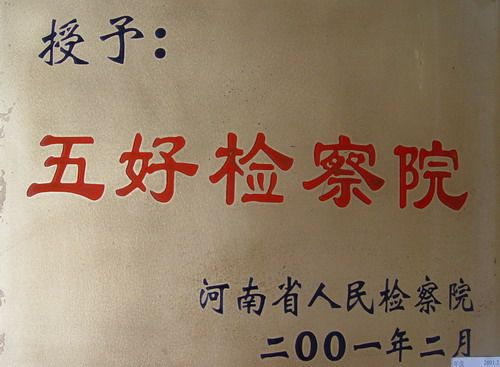 授予：
五好检察院
河南省人民检察院
二00一年二月
2001.2